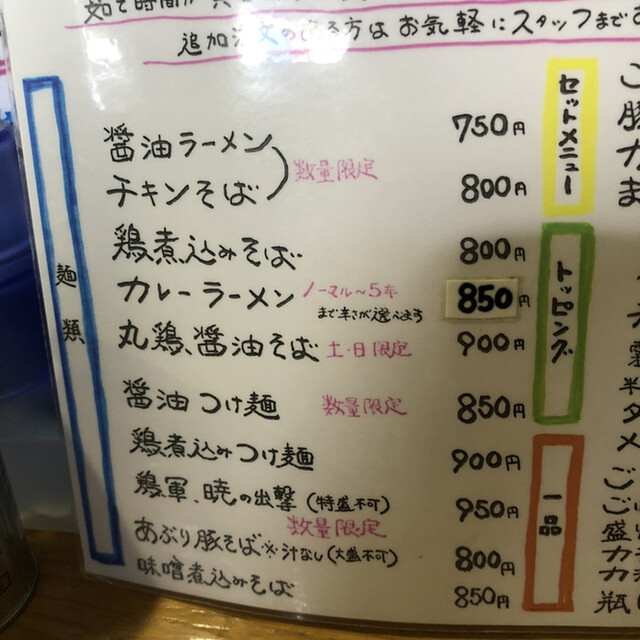 茹で時間が
追加注文のある方はお気軽にスタッフまで
麺類
醤油ラーメン 750円
チキンそば 800円
数量限定
鶏煮込みそば 800円
カレーラーメン ノーマル～5辛まで辛さが選べます 850円
丸鶏、醤油そば 土・日限定 900円
醤油つけ麺 数量限定 850円
鶏煮込みつけ麺 900円
鶏軍、暁の出撃 (特盛不可) 950円
数量限定
あぶり豚そば ※汁なし(大盛不可) 800円
味噌煮込みそば 850円
セットメニュー
トッピング
一品